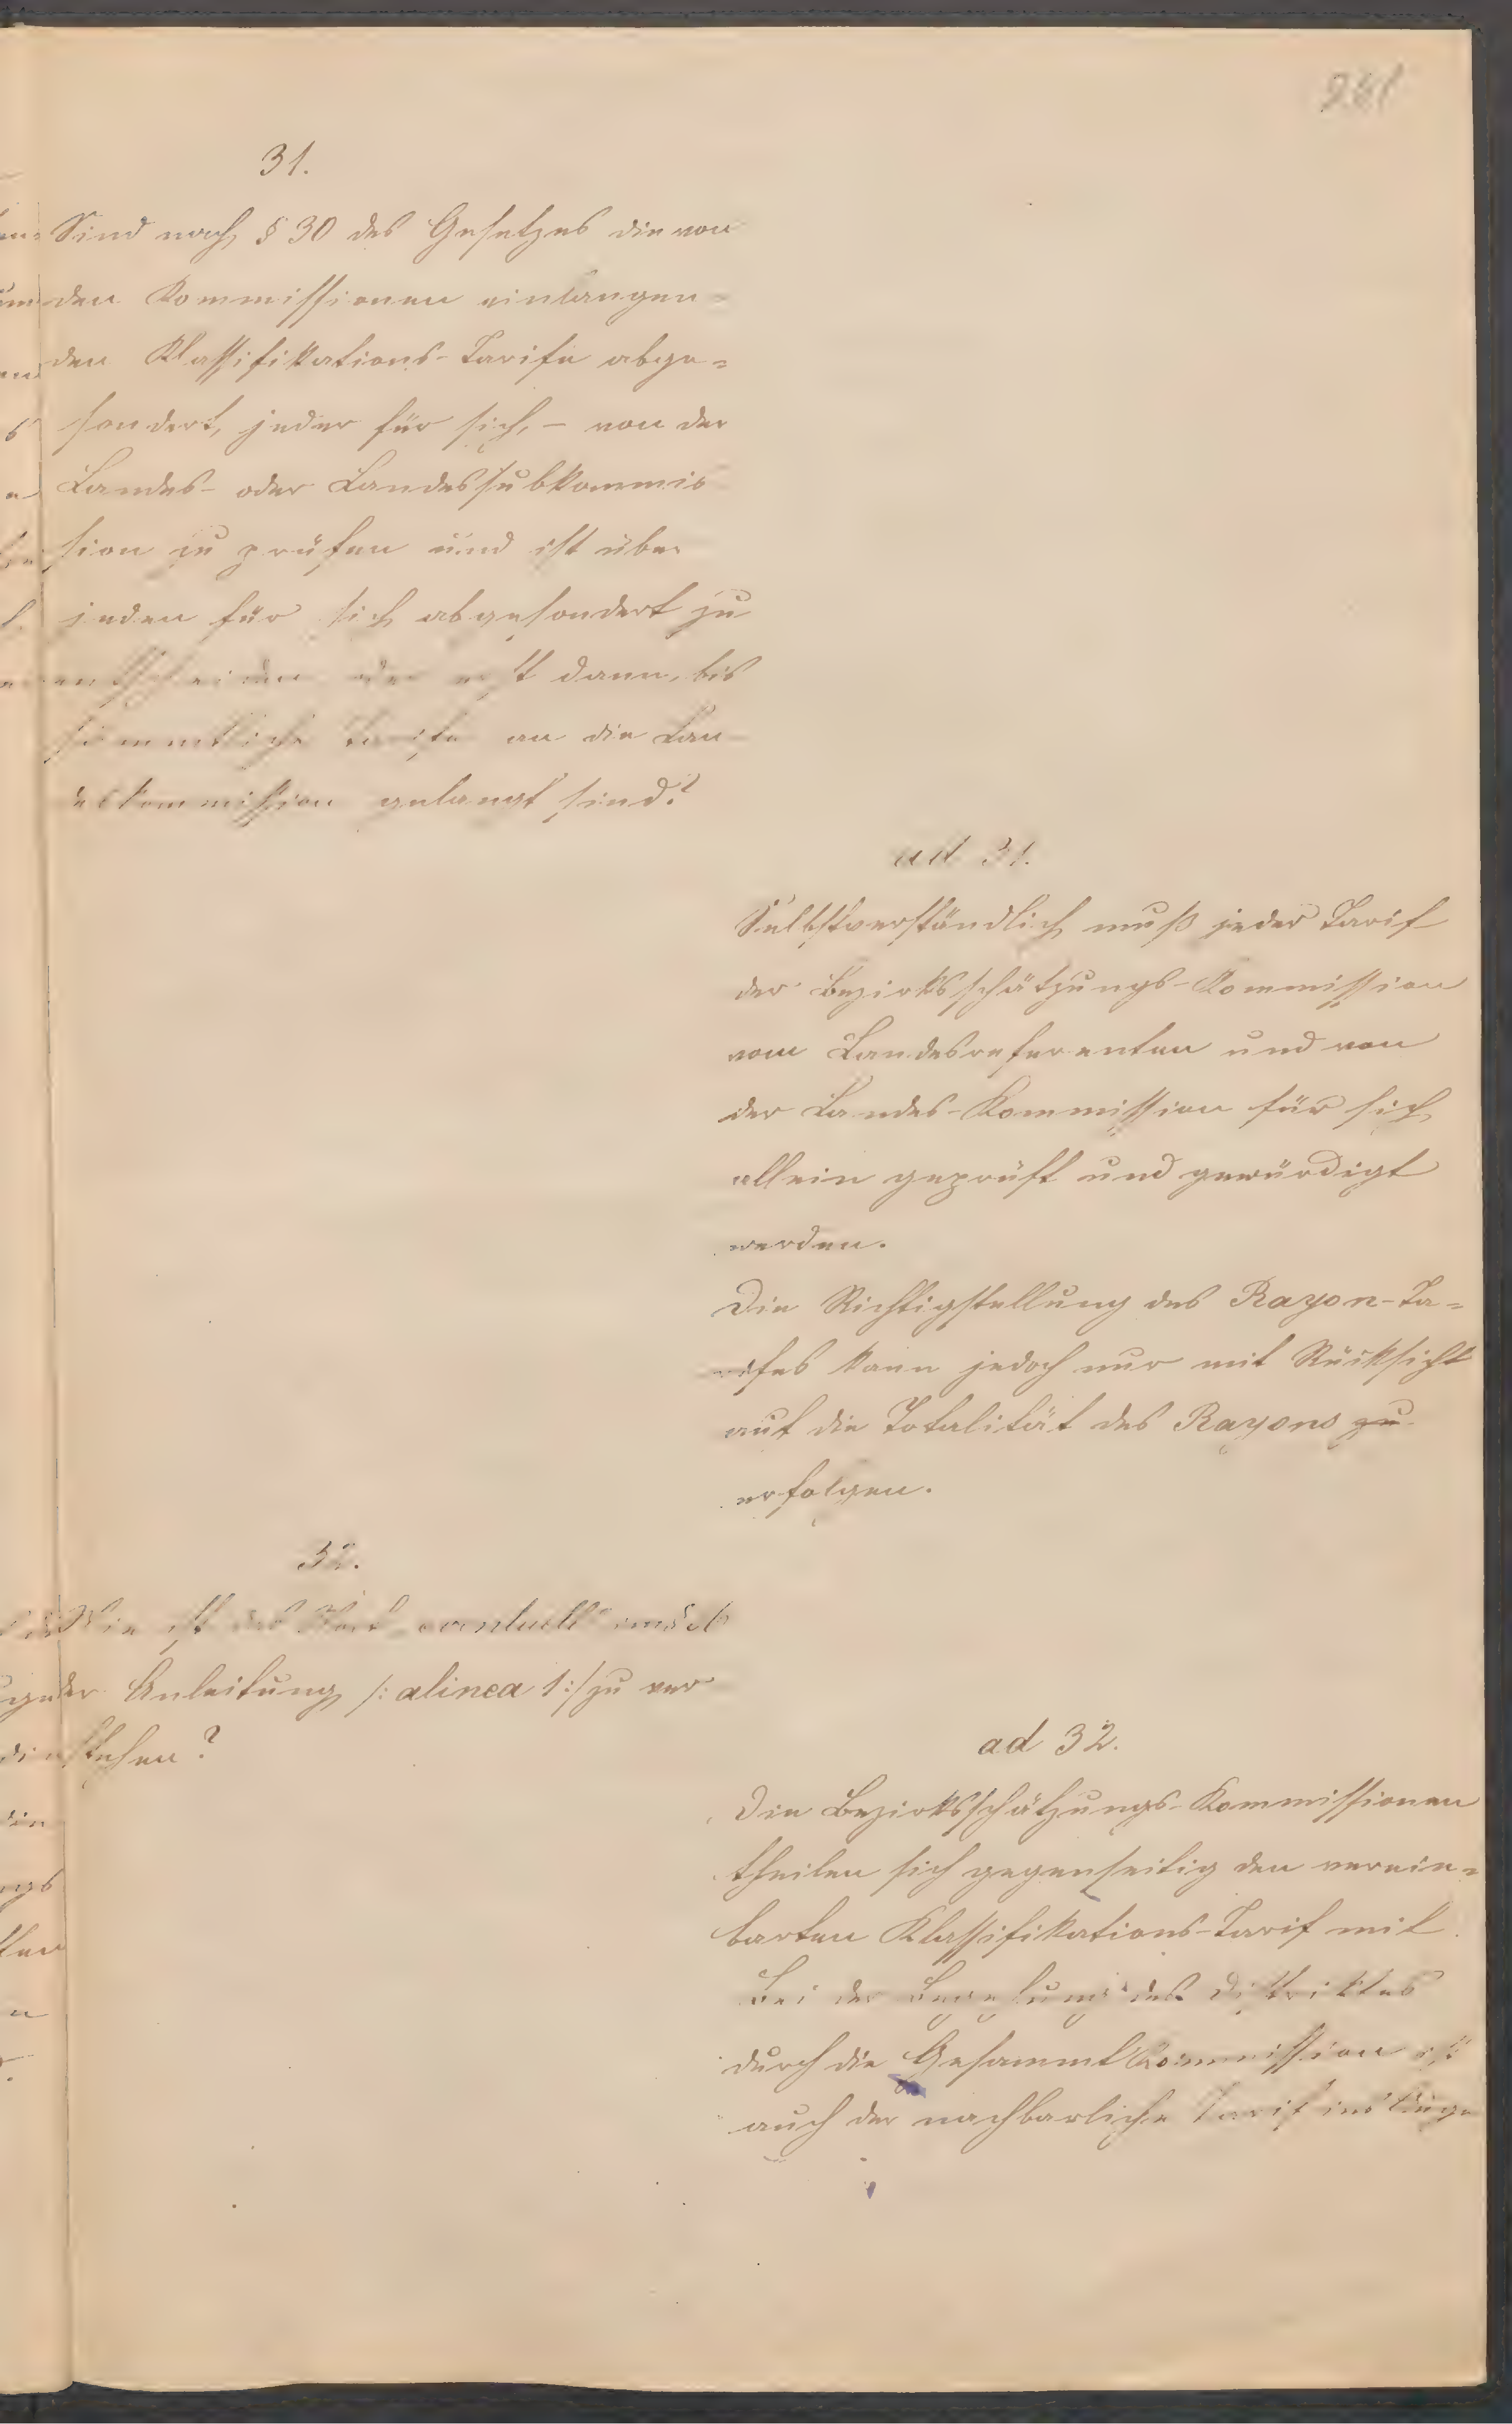 261
31.
Sind nach § 30 des Gesetzes die von
den Kommissionen einlangen
den Klassifikations-Tarife abge=
sondert, jeder für sich, – von der
Landes- oder Landessubkommis
sion zu prüfen und ist über
jeden für sich abgesondert zu
entscheiden oder erst dann, bis
sämmtliche Tarife an die Lan
deskommission gelangt sind?
ad 31.
Selbstverständlich muß jeder Tarif
der Bezirksschätzungs-Kommission
vom Landesreferenten und von
der Landes-Kommission für sich
allein geprüft und gewürdigt
werden.
Die Richtigstellung des Rayon-Ta=
rifes kann jedoch nur mit Rücksicht
auf die Totalität des Rayons zu
erfolgen.
32.
Wie ist das Wort "eventuell" im
der Anleitung /: alinea 1 :/ zu ver
stehen?
ad 32.
Die Bezirksschätzungs-Kommissionen
theilen sich gegenseitig den verein=
barten Klassifikations-Tarif mit.
Bei der Begehung des Distriktes
durch die Gesammt Kommission ist
auch der nachbarliche Tarif ins Auge